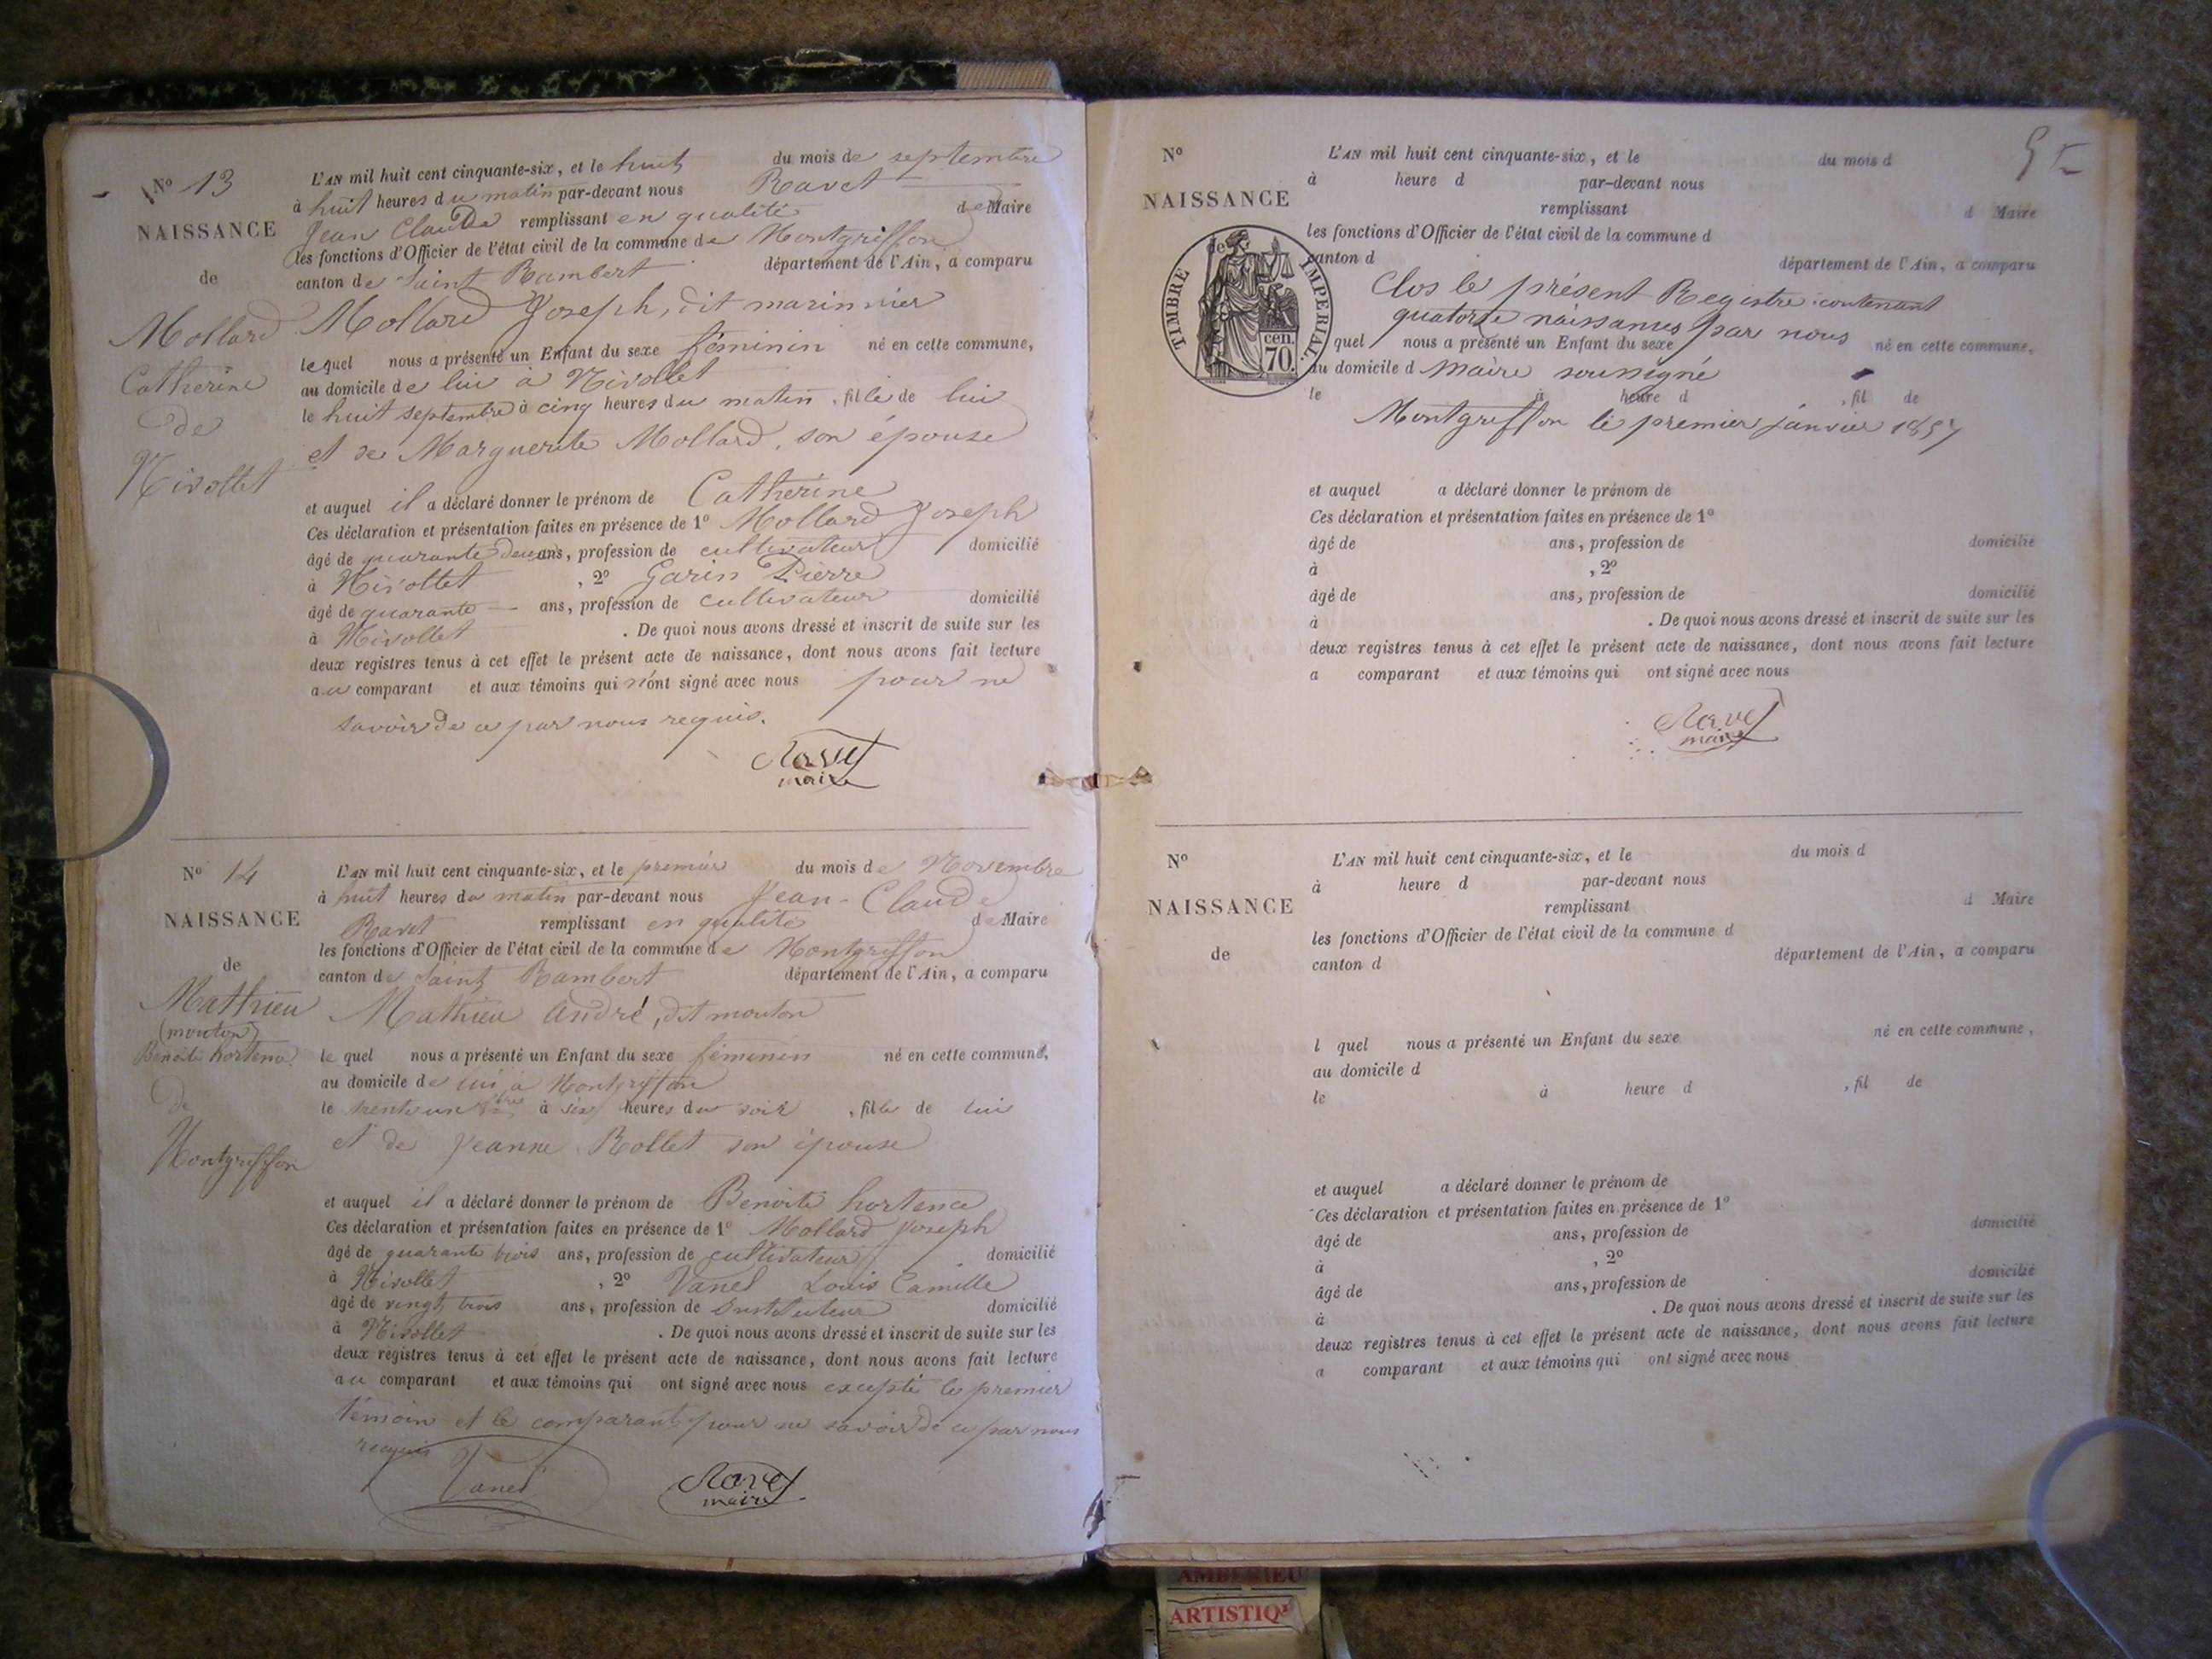 N° 13
NAISSANCE
de
Mollard
Catherine
de
Nivollet
L'AN mil huit cent cinquante-six, et le huit du mois de septembre
à huit heures du matin par-devant nous Ravet
Jean Claude remplissant en qualité de Maire
les fonctions d'Officier de l'état civil de la commune de Montgriffon
canton de Saint Rambert département de l'Ain, a comparu
Mollard Joseph, dit marinnier
lequel nous a présenté un Enfant du sexe féminin né en cette commune,
au domicile de lui à Nivollet
le huit septembre à cinq heures du matin, fille de lui
et de Marguerite Mollard, son épouse
et auquel il a déclaré donner le prénom de Catherine
Ces déclaration et présentation faites en présence de 1° Mollard Joseph
âgé de quarante deux ans, profession de cultivateur domicilié
à Nivollet, 2° Garin Pierre
âgé de quarante ans, profession de cultivateur domicilié
à Nivollet. De quoi nous avons dressé et inscrit de suite sur les
deux registres tenus à cet effet le présent acte de naissance, dont nous avons fait lecture
au comparant et aux témoins qui n'ont signé avec nous pour ne
savoir de ce par nous requis.
Ravet
maire
N° 14
NAISSANCE
de
Mathieu
(mouton)
Benoite hortence
de
Montgriffon
L'AN mil huit cent cinquante-six, et le premier du mois de Novembre
à huit heures du matin par-devant nous Jean-Claude
Ravet remplissant en qualité de Maire
les fonctions d'Officier de l'état civil de la commune de Montgriffon
canton de Saint Rambert département de l'Ain, a comparu
Mathieu André, dit mouton
le quel nous a présenté un Enfant du sexe féminin né en cette commune,
au domicile de lui à Montgriffon
le trente un 8bre à six heures du soir, fille de lui
et de Jeanne Rollet son épouse
et auquel il a déclaré donner le prénom de Benoite hortence
Ces déclaration et présentation faites en présence de 1° Mollard Joseph
âgé de quarante trois ans, profession de cultivateur domicilié
à Nivollet, 2° Vanel Louis Camille
âgé de vingt trois ans, profession de Instituteur domicilié
à Nivollet. De quoi nous avons dressé et inscrit de suite sur les
deux registres tenus à cet effet le présent acte de naissance, dont nous avons fait lecture
au comparant et aux témoins qui ont signé avec nous excepté le premier
témoin et le comparant pour ne savoir de ce par nous
requis
Vanel
Ravet
maire
N°
NAISSANCE
de
TIMBRE IMPERIAL.
cen.
70.
L'AN mil huit cent cinquante-six, et le du mois d
à heure d par-devant nous
remplissant d Maire
les fonctions d'Officier de l'état civil de la commune d
canton d département de l'Ain, a comparu
Clos le présent Registre contenant
quatorze naissances par nous
quel nous a présenté un Enfant du sexe né en cette commune,
au domicile d maire soussigné
le à heure d, fil de
Montgriffon le premier janvier 1857
et auquel a déclaré donner le prénom de
Ces déclaration et présentation faites en présence de 1°
âgé de ans, profession de domicilié
à, 2°
âgé de ans, profession de domicilié
à. De quoi nous avons dressé et inscrit de suite sur les
deux registres tenus à cet effet le présent acte de naissance, dont nous avons fait lecture
a comparant et aux témoins qui ont signé avec nous
Ravet
maire
N°
NAISSANCE
de
L'AN mil huit cent cinquante-six, et le du mois d
à heure d par-devant nous
remplissant d Maire
les fonctions d'Officier de l'état civil de la commune d
canton d département de l'Ain, a comparu
l quel nous a présenté un Enfant du sexe né en cette commune,
au domicile d
le à heure d, fil de
et auquel a déclaré donner le prénom de
Ces déclaration et présentation faites en présence de 1°
âgé de ans, profession de domicilié
à, 2°
âgé de ans, profession de domicilié
à. De quoi nous avons dressé et inscrit de suite sur les
deux registres tenus à cet effet le présent acte de naissance, dont nous avons fait lecture
a comparant et aux témoins qui ont signé avec nous
AMBERIEU
ARTISTIQ